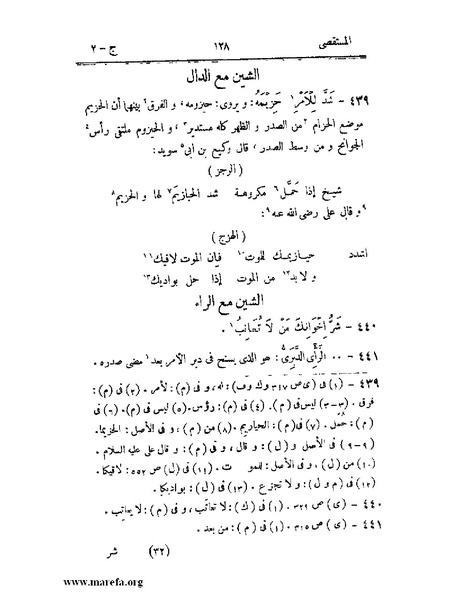 المستقصى ١٣٨ ج - ٢
الشين مع الدال
٤٣٩ - شَدَّ لِلْأَمْرِ١ حَزِيْمَهُ: و يروى: حيزومه، و الفرق٢ بينهما أن الحزيم
موضع الحزام ٣من الصدر و الظهر كله مستدير٣، و الحيزوم ملتقى رأس٤
الجوانح و من وسط الصدر، قال وكيع بن أبى٥ سويد:
(الرجز)
شيخ إذا حَمَّل٦ مكروهة شد الحيازيم٧ لها و الحزيم٨
٩و قال على رضى الله عنه٩:
(الهزج)
اشدد حيازيمك للموت١٠ فإن الموت لاقيك١١
و لا بد١٢ من الموت إذا حل بواديك١٣
الشين مع الراء
٤٤٠ - شَرُّ إِخْوَانِكَ مَنْ لَا تُعَاتِبُ١.
٤٤١ - ٠٠ الرَّأْىِ الدَّبَرِىُّ: هو الذى يسنح فى دبر الأمر بعد١ مضى صدره.
٤٣٩ - (١) فى (ى ص ٣١٧ و ك و ف): له، و فى (م): لأمر. (٢) فى (م):
فرق. (٣-٣) ليس فى (م). (٤) فى (م): رؤس. (٥) ليس فى (م). (٦) فى
(م): حُمّل. (٧) فى (م): الحيازيم. (٨) من (م)، و فى الأصل: الحزيما.
(٩-٩) فى الأصل و (ل): و قال، و فى (م): و قال على عليه السلام.
(١٠) من (ل)، و فى الأصل: للمو ت. (١١) فى (ل) ص ٥٥٢: لاقيكا.
(١٢) فى (م و ل): و لا تجزع. (١٣) فى (ل): بواديكا.
٤٤٠ - (ى) ص ٣٢٩. (١) فى (ك): لا تعاتَب، و فى (م): لا يعاتِب.
٤٤١ - (ى) ص ٣١٥. (١) فى (م): من بعد.
(٣٢) شر
www.marefa.org